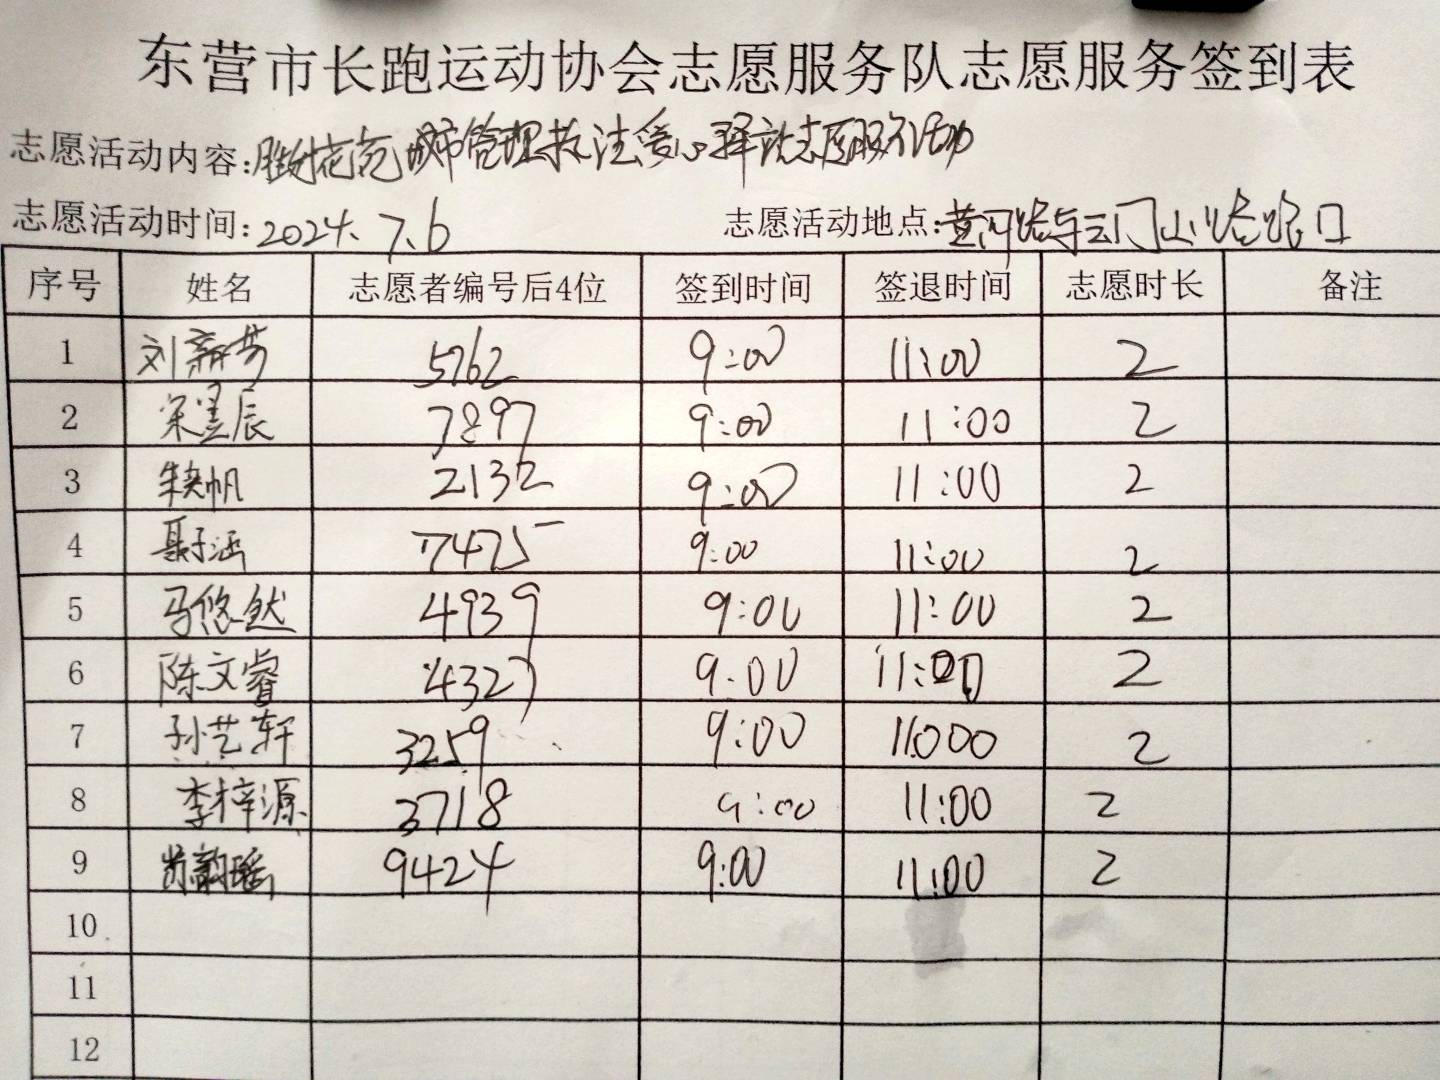 东营市长跑运动协会志愿服务队志愿服务签到表
志愿活动内容:胜利花苑城市管理执法爱心驿站志愿服务活动
志愿活动时间:2024.7.6 志愿活动地点:黄河路与云门山路路口
序号 姓名 志愿者编号后4位 签到时间 签退时间 志愿时长 备注
1 刘新芳 5762 9:00 11:00 2
2 宋星辰 7897 9:00 11:00 2
3 帆 2132 9:00 11:00 2
4 聂子涵 7475 9:00 11:00 2
5 马悠然 4939 9:00 11:00 2
6 陈文睿 4327 9:00 11:00 2
7 孙艺轩 3259 9:00 11:00 2
8 李梓源 3718 9:00 11:00 2
9 韵瑶 9424 9:00 11:00 2
10
11
12